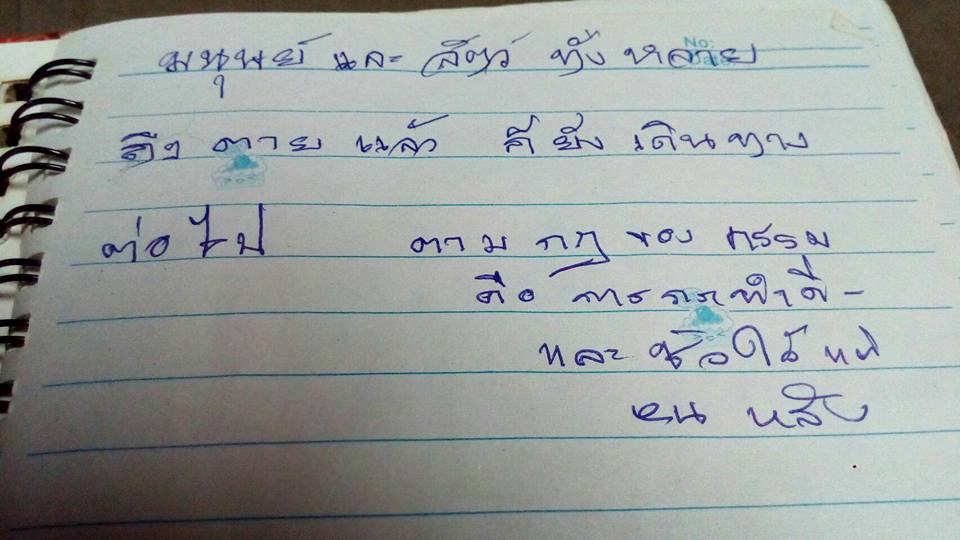 มนุษย์ และ สัตว์ ทั้ง หลาย
ถึง ตาย แล้ว ก็ ยัง เดินทาง
ต่อไป ตาม กฎ ของ กรรม
คือ การกระทำดี-
และ ชั่วใน
หน หลัง
No: